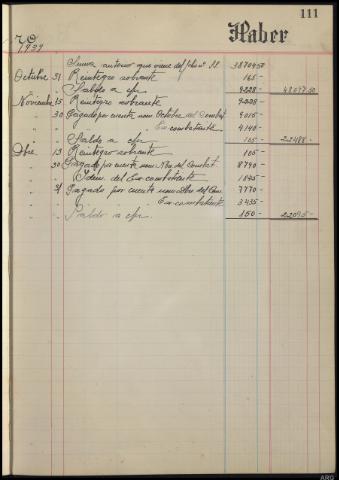 111
Haber
1939
Suma anterior que viene del folio nº 38704,50
Octubre 31 Reintegro sobrante 165-
" " Saldo a c/n 9228- 48097,50
Noviembre 15 Reintegro sobrante 9228-
" 30 Pagado por cuenta nom Octubre del Combat. 9015-
" " " " " " Ex-combatiente 4140-
" " Saldo a c/n 105- 22488-
Dbre 13 Reintegro sobrante 105-
" 30 Pagado por cuenta nom Nbre del Combat. 8790-
" " Idem. del Ex-combatiente 1845-
" 31 Pagado por cuenta nom Dbre del Com. 7770-
" " " " " Ex-combatiente 3435-
" " Saldo a c/n. 150- 22095-
ARG